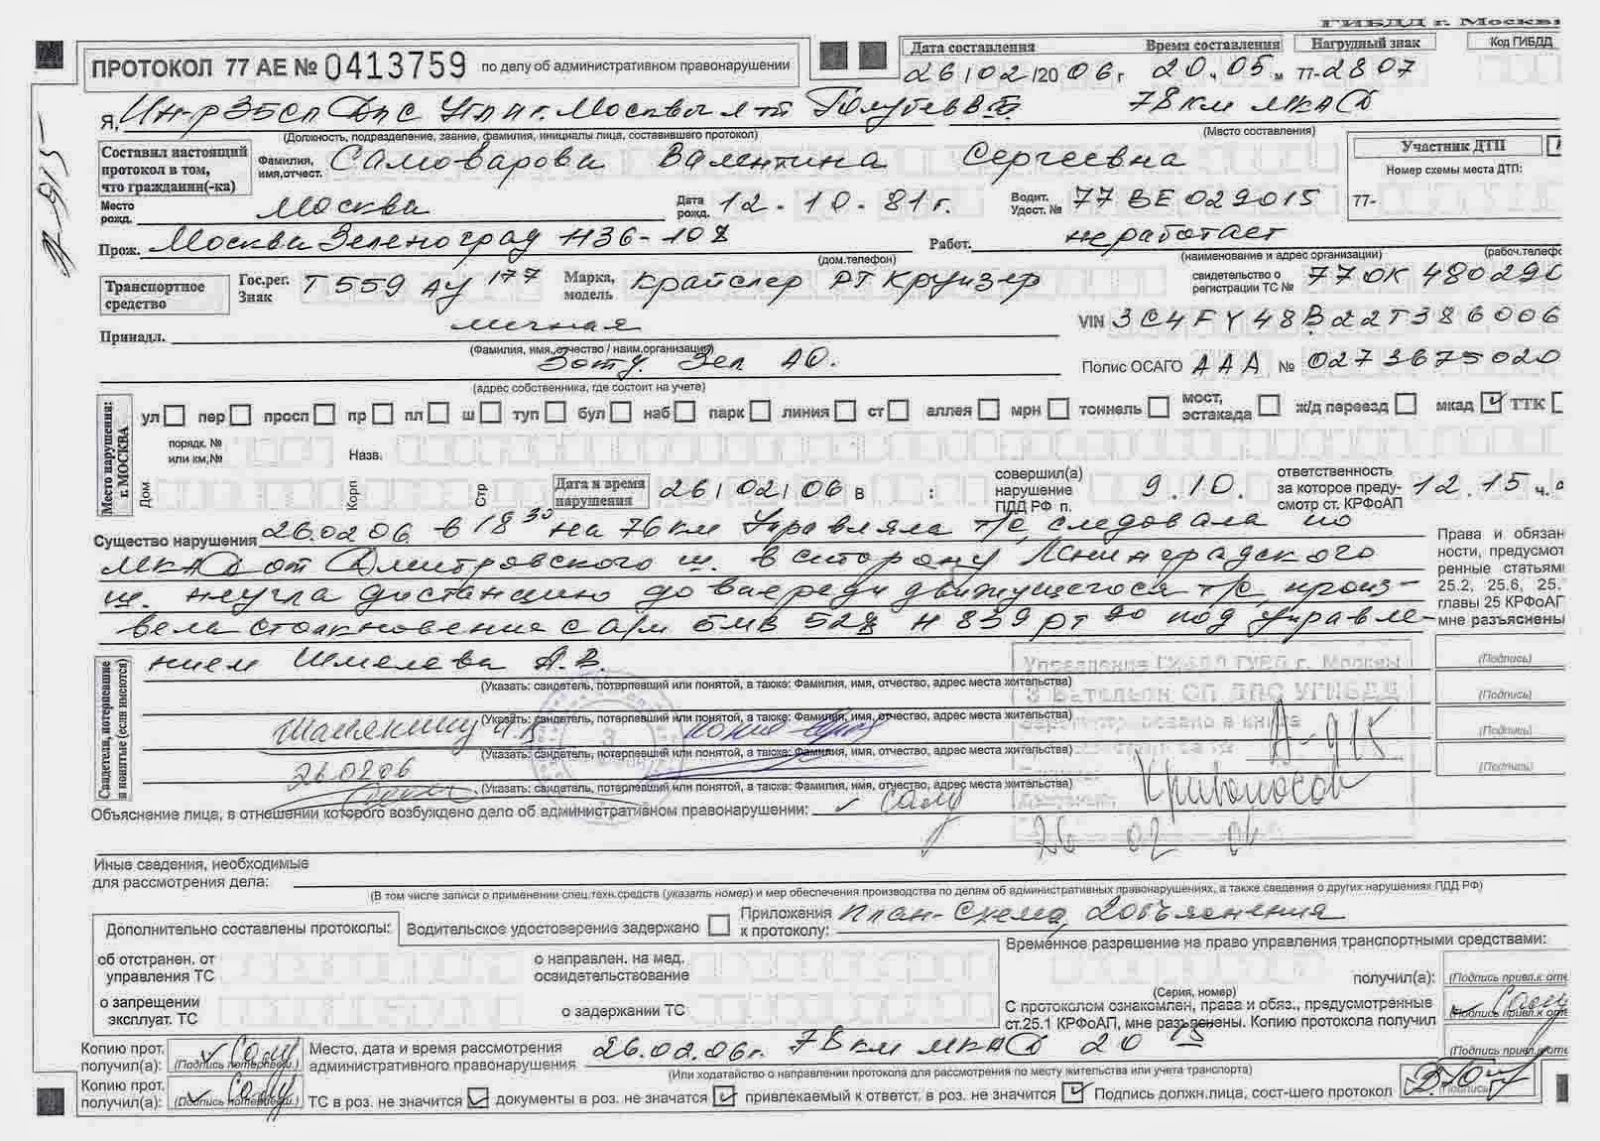 ГИБДД г. Москвы
ПРОТОКОЛ 77 АЕ № 0413759 по делу об административном правонарушении
Дата составления Время составления Нагрудный знак Код ГИБДД
26/02/2006г 20 ч. 05 м 77-2807
Я, Ин-р 3 БСП ДПС г. Москвы л-т Голубев В 78 км МКАД
(Должность, подразделение, звание, фамилия, инициалы лица, составившего протокол) (Место составления)
Составил настоящий протокол в том, что гражданин(-ка)
Фамилия, имя,отчест. Самоварова Валентина Сергеевна
Участник ДТП
Номер схемы места ДТП:
77-
Место рожд. Москва Дата рожд. 12.10.81г. Водит. Удост. № 77 ВЕ 029015
Прож. Москва Зеленоград Работ. не работает
(дом.телефон) (наименование и адрес организации) (рабоч.телефо
Транспортное средство Гос.рег. Знак Т 559 АУ 177 Марка, модель Крайслер РТ Крузер свидетельство о регистрации ТС № 77ОК 480290
Принадл. личная VIN 3C4FY48B22T386006
(Фамилия, имя, отчество / наим.организации)
Зел АО. Полис ОСАГО ААА № 0273675020
(адрес собственника, где состоит на учете)
Место нарушения: г. МОСКВА
ул пер просп пр пл ш туп бул наб парк линия ст аллея мрн тоннель мост, эстакада ж/д переезд мкад ТТК
порядк. № или км,№ Назв.
Дом Корп Стр Дата и время нарушения 26/02/06 в : совершил(а) нарушение ПДД РФ п. 9.10. ответственность за которое преду- смотр ст. КРФоАП 12.15 ч.
Существо нарушения 26.02.06 в 18 30 на 76 км Управляла т/с, следовала по
МКАД от Дмитровского ш. в сторону Ленинградского
ш. неучла дистанцию до впереди движущегося т/с, произ-
вела столкновение с а/м БМВ 528 Н 839 РТ 90 под управле-
нием Шмелева А.В.
Права и обязан
ности, предусмот
ренные статьями
25.2, 25.6, 25.
главы 25 КРФоАП
мне разъяснены
(Подпись)
(Подпись)
(Подпись)
(Подпись)
Свидетели, потерпевшие и понятые (если имеются)
(Указать: свидетель, потерпевший или понятой, а также: Фамилия, имя, отчество, адрес места жительства)
(Указать: свидетель, потерпевший или понятой, а также: Фамилия, имя, отчество, адрес места жительства)
(Указать: свидетель, потерпевший или понятой, а также: Фамилия, имя, отчество, адрес места жительства)
26.02.06
(Указать: свидетель, потерпевший или понятой, а также: Фамилия, имя, отчество, адрес места жительства)
Управление ГИБДД ГУВД г. Москвы
3 Батальон СП ДПС УГИБДД
Д-915
26 02 06
Объяснение лица, в отношении которого возбуждено дело об административном правонарушении:
Иные сведения, необходимые
для рассмотрения дела:
(В том числе записи о применении спец.техн.средств (указать номер) и мер обеспечения производства по делам об административных правонарушениях, а также сведения о других нарушениях ПДД РФ)
Дополнительно составлены протоколы: Водительское удостоверение задержано Приложения к протоколу: План-Схема, 2 объяснения
Временное разрешение на право управления транспортными средствами:
об отстранен. от управления ТС о направлен. на мед. освидетельствование
получил(а): (Подпись привл.к отв
(Серия, номер)
о запрещении эксплуат. ТС о задержании ТС
С протоколом ознакомлен, права и обяз., предусмотренные
ст.25.1 КРФоАП, мне разъянены. Копию протокола получил
(Подпись привл.к отв
Копию прот. получил(а): (Подпись потерпевш.) Место, дата и время рассмотрения административного правонарушения 26.02.06г. 78 км МКАД 20 15
(Подпись привл.к отв
(Или ходатайство о направлении протокола для рассмотрения по месту жительства или учета транспорта)
Копию прот. получил(а): (Подпись потерпевш.) ТС в роз. не значится документы в роз. не значатся привлекаемый к ответст. в роз. не значится Подпись должн.лица, сост-шего протокол (Подпись)